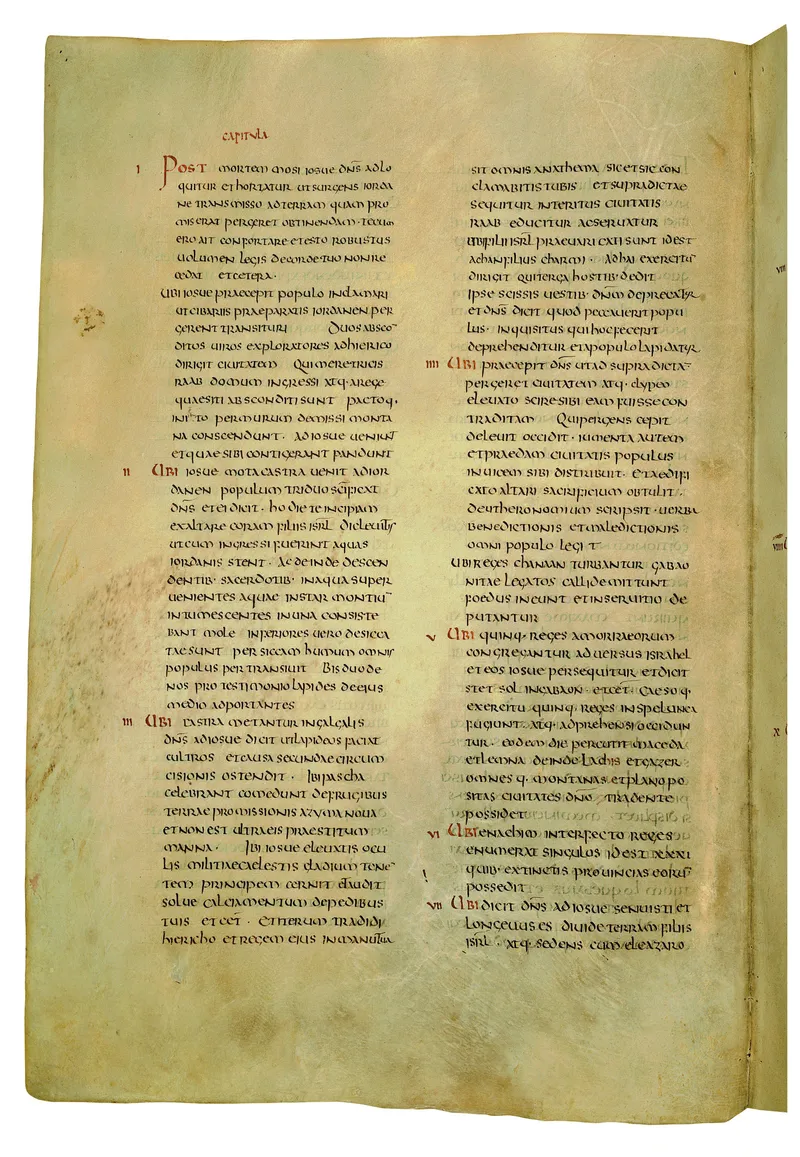 CAPITULA
I POST mortem mosi iosue dn̄s adlo
quitur et hortatur ut surgens iorda
ne transmisso ad terram quam pro
miserat pergeret obtinendam · tecum
ero ait confortare et esto robustus
volumen legis de corde tuo non re
cedat et cetera ·
Ubi iosue praecepit populo in damari
ut cibariis praeparatis iordanen per
gerent transituri Duos absco
ditos viros exploratores ad hierico
dirigit civitatem Qui meretricis
raab domum ingressi atq · a rege
quaesiti absconditi sunt pacto q ·
inito per murum demissi monta
na conscendunt · ad iosue veniut̄
et quae sibi contigerant pandunt
II Ubi iosue mota castra venit ad ior
danen populum triduo sc̄ificat
dn̄s et ei dicit · hodie te incipiam
exaltare coram filiis isrl̄ di levitis
ut cum ingressi fuerint aquas
iordanis stent · Ac deinde descen
dentib · sacerdotib · in aqua super
venientes aquae instar montiū
intumescentes in una consiste
bant mole inferiores vero desicca
tae sunt per siccam humum omnis
populus pertransiuit Bis duode
nos pro testimonio lapides de eius
medio adportantes
III Ubi castra metantur in galgalis
dn̄s ad iosue dicit ut lapideos faciat
cultros et causa secundae circum
cisionis ostendit · Ibi pascha
celebrant comedunt de frugibus
terrae promissionis azyma noua
et non est ultra eis praestitum
manna · Ibi iosue eleuatis ocu
lis militiae caelestis gladium tenē
tem principem cernit et audit
solue calciamentum de pedibus
tuis et cet̄ · et iterum tradidi
hiericho et regem eius in manu tua
sit omnis anathema sic et sic con
clamabitis tubis et supradictae
sequitur interitus civitatis
raab educitur ac seruatur
Ubi filii isrl̄ praeuaricati sunt id est
achan filius charmi · Ad hai exercitū
dirigit qui terga hostib · dedit
ipse scissis vestib · dn̄m deprecatur
et dn̄s dicit quod peccauerit popu
lus · inquisitus qui hoc fecerit
deprehenditur et a populo lapidatur
IIII Ubi praecepit dn̄s ut ad supradictā
pergeret civitatem atq · clypeo
eleuato scire sibi eam fuisse con
traditam Qui pergens cepit
deleuit occidit · iumenta autem
et praedam civitatis populus
in uicem sibi distribuit · Et aedifi
cato altari sacrificium obtulit ·
deutheronomium scripsit · uerba
benedictionis et maledictionis
omni populo legit
Ubi reges chanaan turbantur gabao
nitae legatos callide mittunt
foedus ineunt et in seruitio de
putantur
V Ubi quinq · reges amorraeorum
congregantur aduersus israhel
et eos iosue persequitur et dicit
stet sol in gabaon · et cet̄ · Caeso q ·
exercitu quinq · reges in spelunca
fugiunt · atq · adprehensi occidun
tur · eodem die percutit maceda
et lemna deinde lachis et gazer
omnes q · montanas et plano po
sitas civitates dn̄o tradente
possidet
VI Ubi enachim interfecto reges
enumerat singulos id est xxxi
quib · extinctis prouincias eorū
possedit
VII Ubi dicit dn̄s ad iosue senuisti et
longeuus es diuide terram filiis
isrl̄ · atq · sedens cum eleazaro